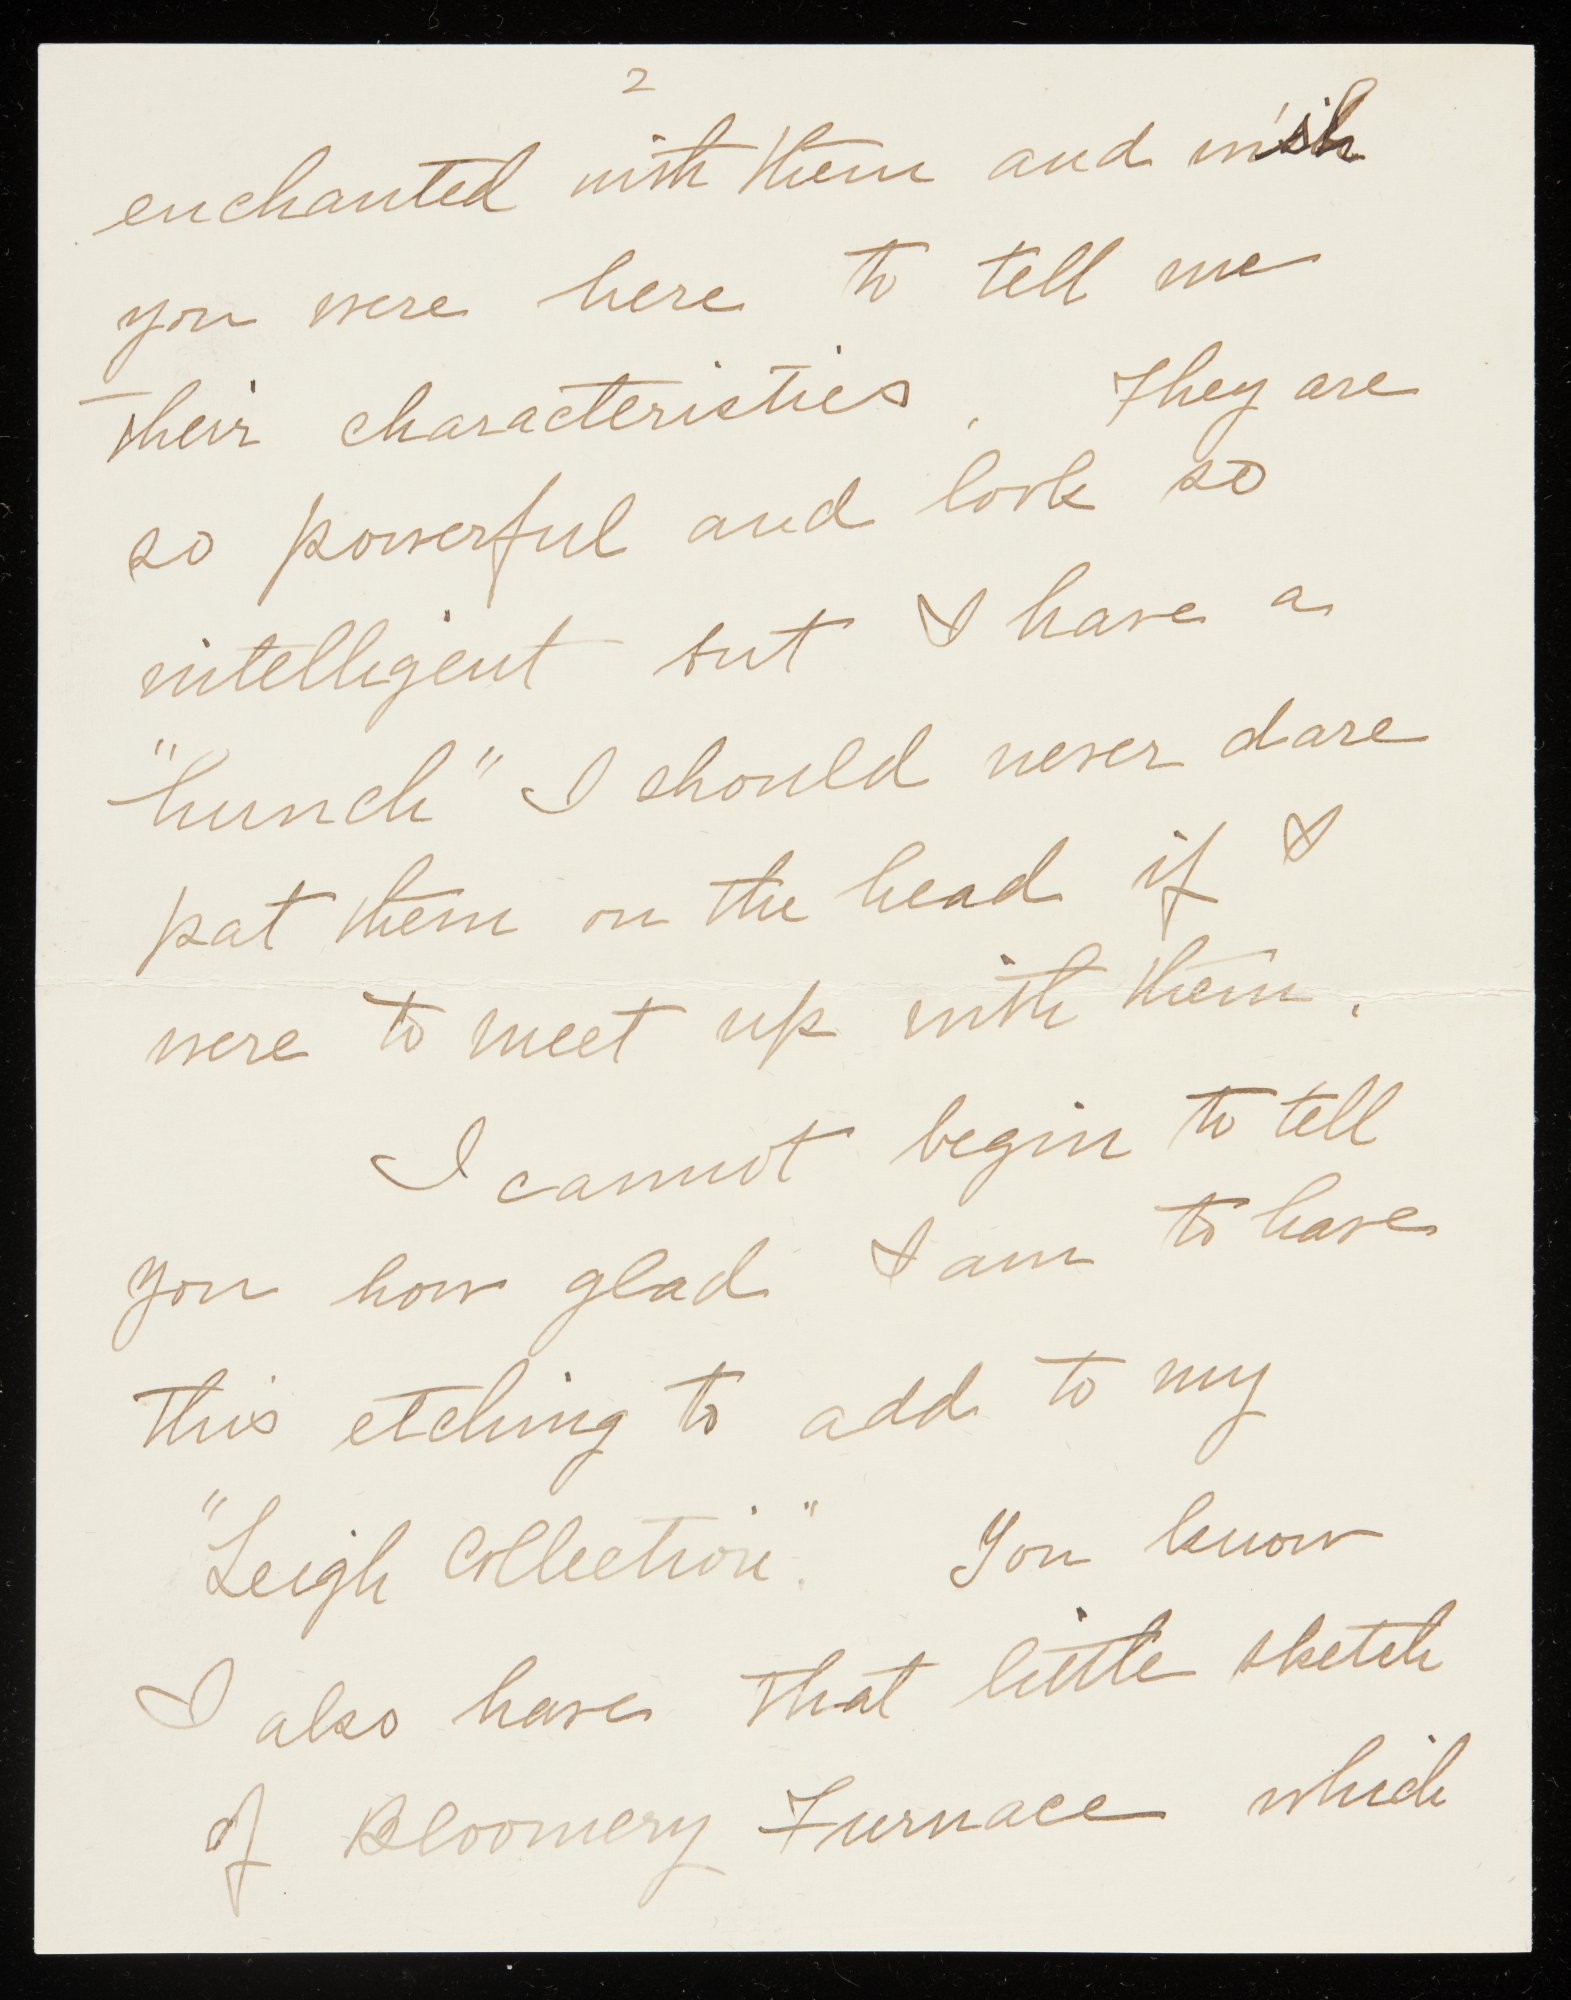 2
enchanted with them and wish
you were here to tell me
their characteristics. They are
so powerful and look so
intelligent but I have a
"hunch" I should never dare
pat them on the head if I
were to meet up with them.
I cannot begin to tell
you how glad I am to have
this etching to add to my
"Leigh Collection". You know
I also have that little sketch
of Bloomery Furnace which